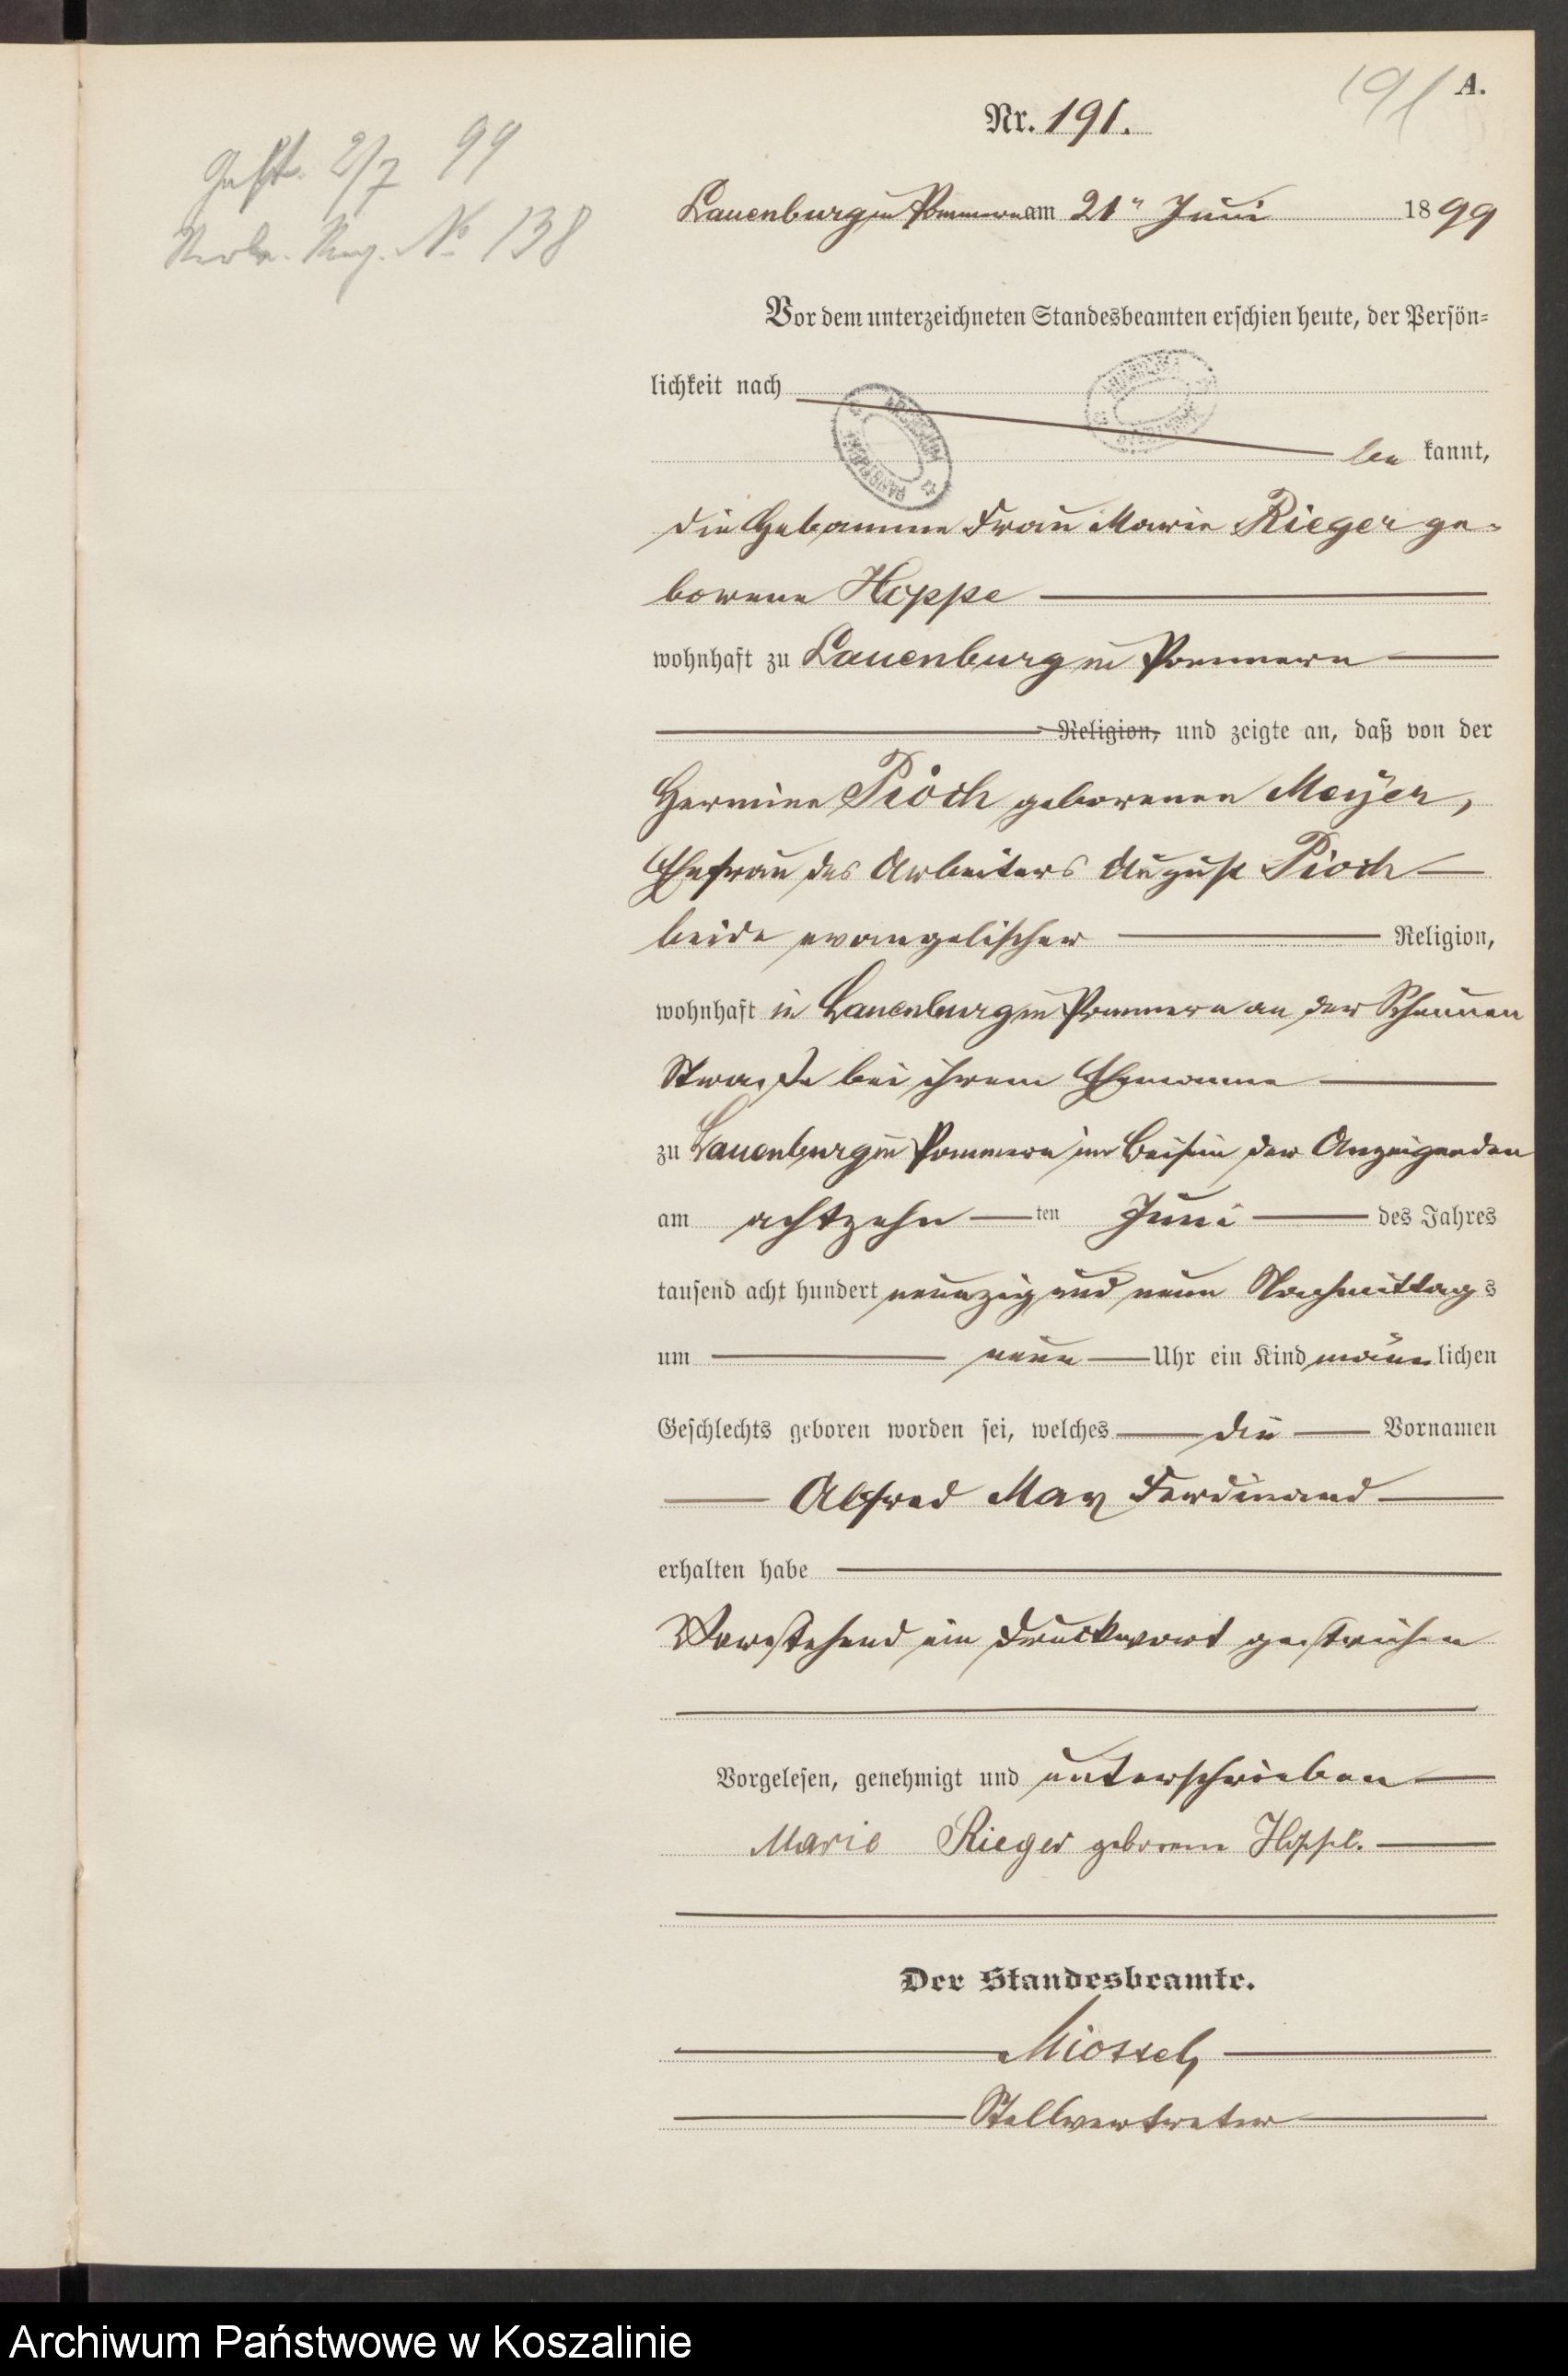 191
A.
Nr. 191.
Gest. 2/7 99
Sterbe. Reg. No 138
Lauenburg in Pommern am 21ten Juni 1899
Vor dem unterzeichneten Standesbeamten erschien heute, der Persön-
lichkeit nach
be kannt,
die Hebamme Frau Marie Rieger ge-
borene Hoppe
wohnhaft zu Lauenburg in Pommern
Religion, und zeigte an, daß von der
Hermine Pioch geborenen Meyer,
Ehefrau des Arbeiters August Pioch
beide evangelischer Religion,
wohnhaft in Lauenburg in Pommern an der Scheunen
Straße bei ihrem Ehemanne
zu Lauenburg in Pommern im Beisein der Anzeigenden
am achtzehn ten Juni des Jahres
tausend acht hundert neunzig und neun Nachmittags
um neun Uhr ein Kind männlichen
Geschlechts geboren worden sei, welches die Vornamen
Alfred Max Ferdinand
erhalten habe
Vorstehend ein Druckwort gestrichen
Vorgelesen, genehmigt und unterschrieben
Marie Rieger geborene Hoppe.
Der Standesbeamte.
Stellvertreter
Archiwum Państwowe w Koszalinie